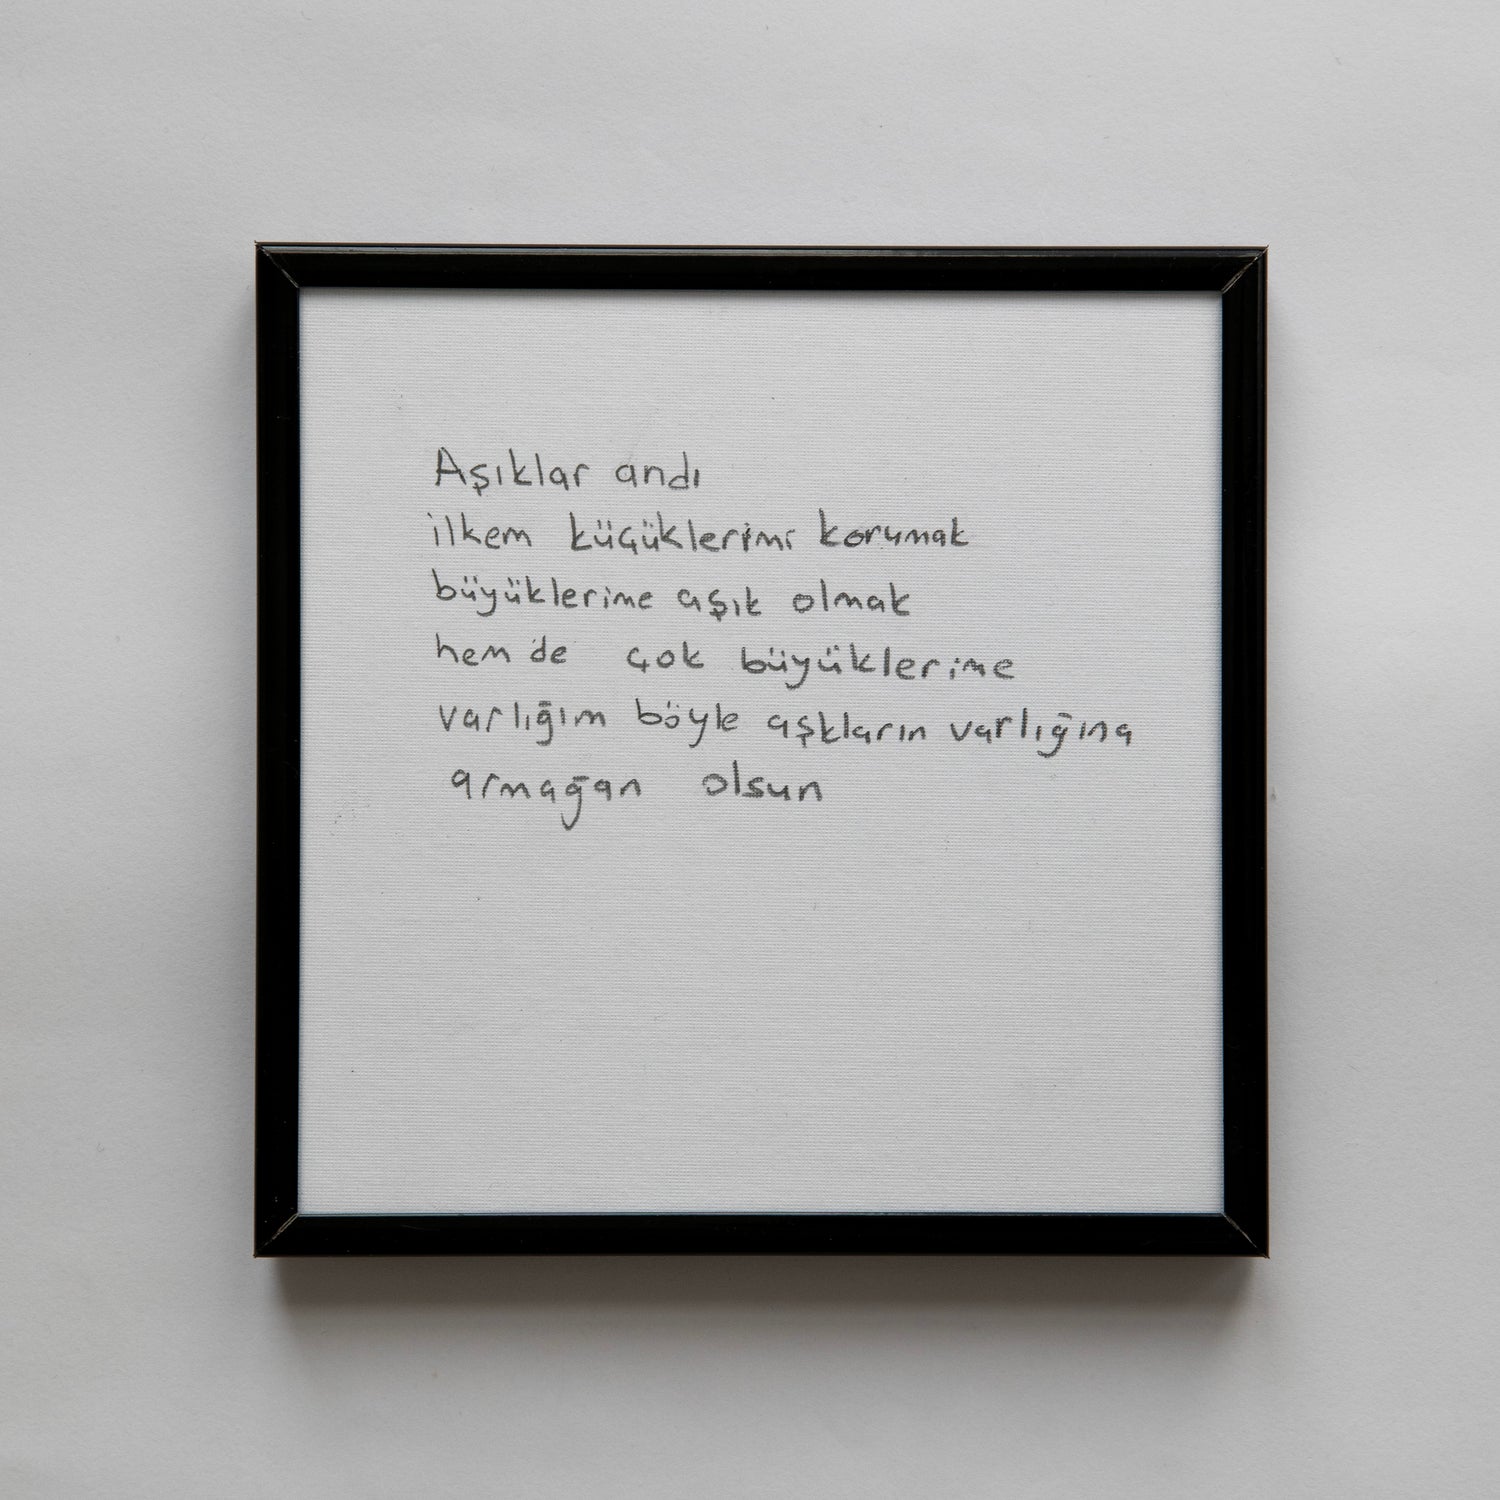 Aşıklar andı
ilkem küçüklerimi korumak
büyüklerime aşık olmak
hem de çok büyüklerime
varlığım böyle aşkların varlığına
armağan olsun